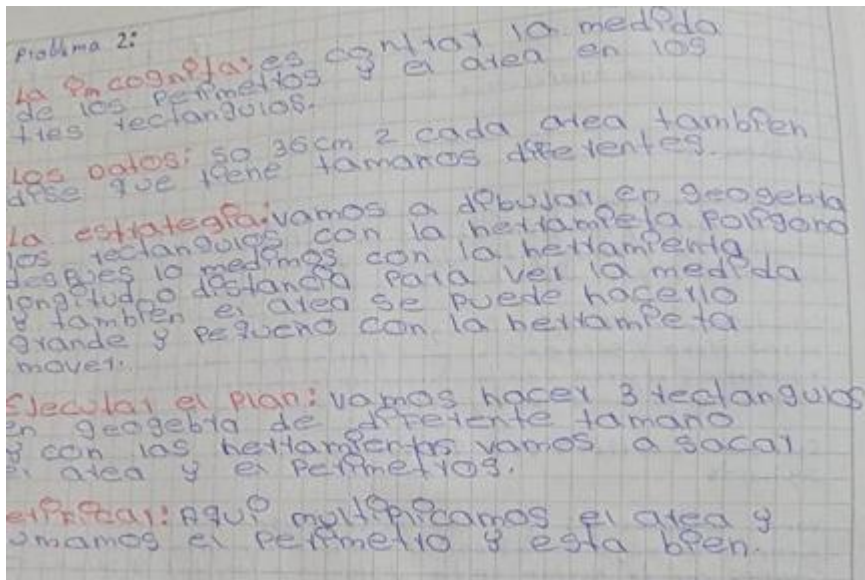 Problema 2:
La incognita: es contrar la medida
de los perimetros y el area en los
tres rectangulos.
Los datos: so 36cm 2 cada area tambien
dise que tiene tamanos diferentes.
La estrategia: vamos a dibujar en geogebra
los rectangulos con la herramieta poligono
despues lo medimos con la herramienta
longitud o distancia para ver la medida
y tambien el area se puede hacerlo
grande y pequeno con la herramieta
mover.
Ejecutar el plan: vamos hacer 3 rectangulos
en geogebra de diferente tamano
y con las herramientas vamos a sacar
el area y el perimetros.
erificar: Aqui multiplicamos el area y
umamos el perimetro y esta bien.